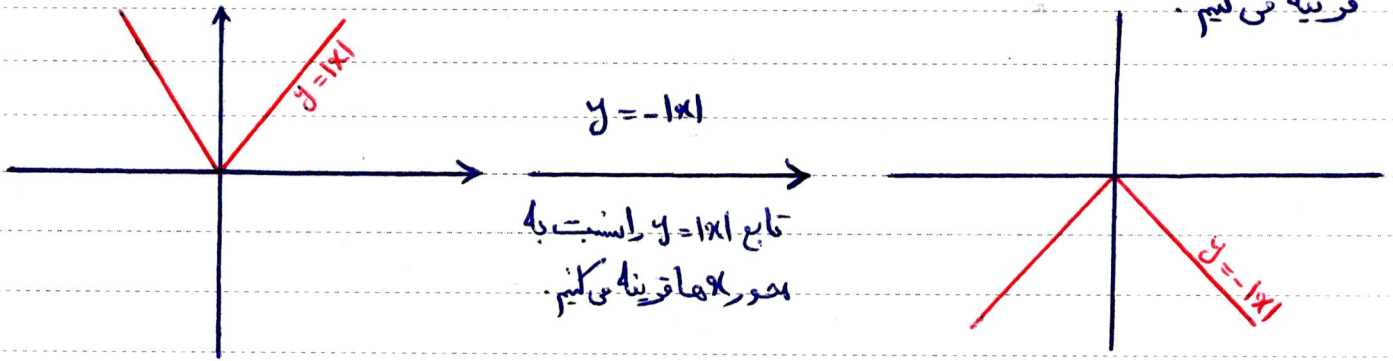 قرینه می کنیم .
y = |x|
y = -|x|
تابع y = |x| را نسبت به
محور x ها قرینه می کنیم.
y = -|x|